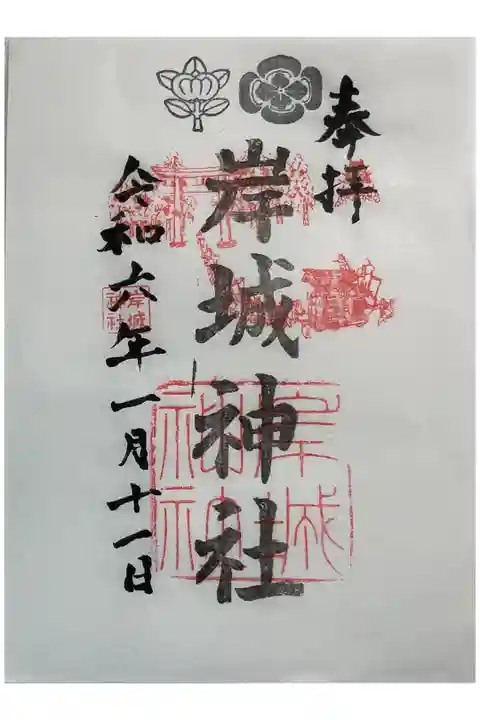 奉拝
岸城神社
岸城神社
令和六年一月十一日
岸城神社